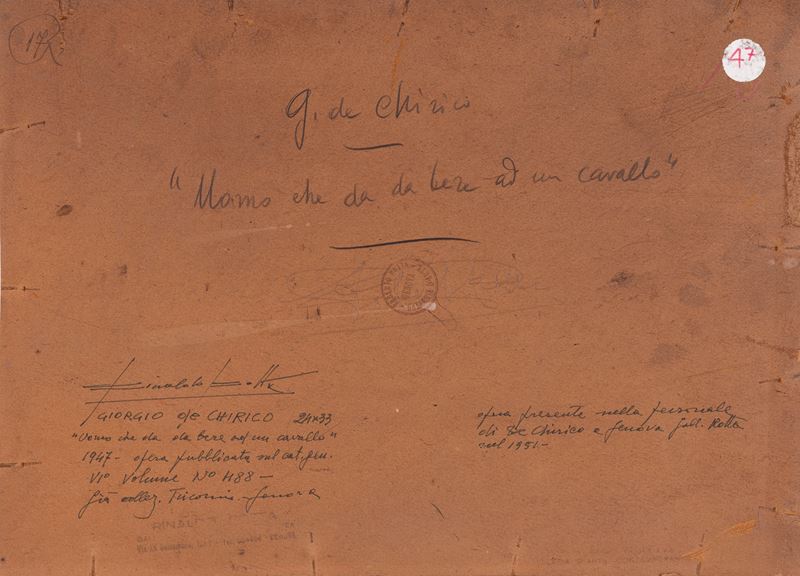 17
47
G. de Chirico
"Uomo che da da bere ad un cavallo"
Rinaldo Rotta
GIORGIO de CHIRICO 24x33
"Uomo che da da bere ad un cavallo"
1947 - opera pubblicata sul cat. gen.
VI° Volume N° 488 -
Già collez. Genova
opera presente nella personale
di De Chirico a Genova Gall. Rotta
nel 1951.-
RINAL